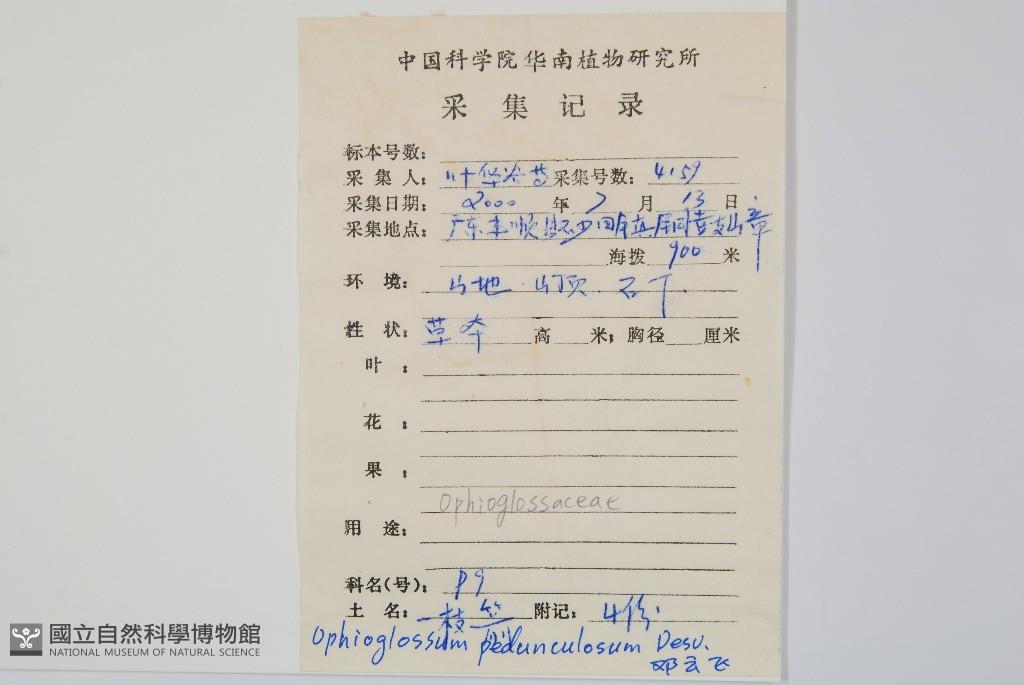 中国科学院华南植物研究所
采集记录
标本号数:
采集人: 叶华谷 采集号数: 4159
采集日期: 2000 年 7 月 13 日
采集地点: 广东丰顺县 田镇 铜鼓嶂
海拨 900 米
环境: 山地 山顶 石下.
性状: 草本 高 米; 胸径 厘米
叶:
花:
果:
Ophioglossaceae
用途:
科名(号): P9
土名: 一枝箭 附记: 4份.
Ophioglossum pedunculosum Desv.
邓云飞
國立自然科學博物館
NATIONAL MUSEUM OF NATURAL SCIENCE